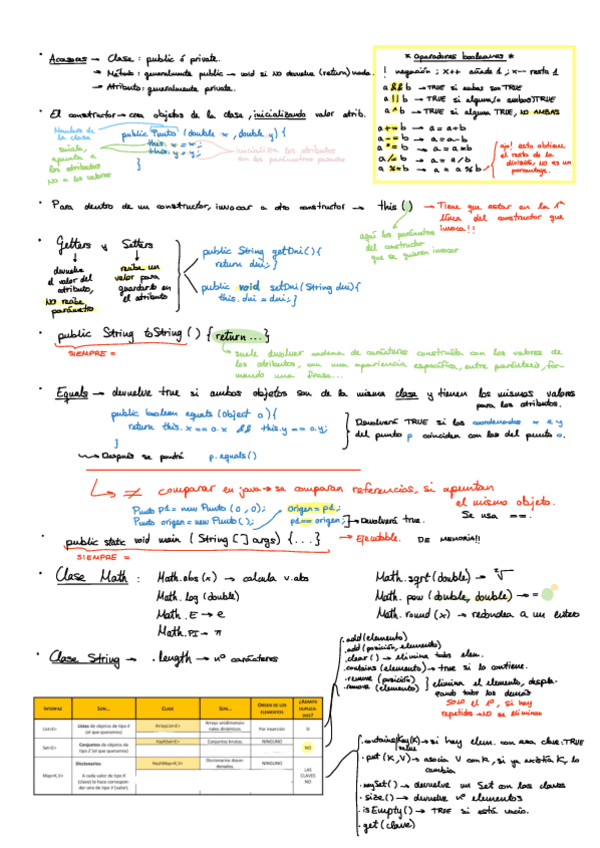 · Accesos → Clase : public ó private.
→ Método : generalmente public → void si NO devuelve (return) nada.
→ Atributo : generalmente private.
* Operadores booleanos *
! negación ; x++ añade 1 ; x-- resta 1
a && b → TRUE si ambas son TRUE
a || b → TRUE si alguna/o ambas TRUE
a ^ b → TRUE si alguna TRUE, NO AMBAS
a += b → a = a+b
a -= b → a = a-b
a *= b → a = a*b
a /= b → a = a/b
a %= b → a = a % b
ojo! esto obtiene
el resto de la
división, NO es un
porcentaje.
· El constructor → crea objetos de la clase, inicializando valor atrib.
Nombre de
la clase
public Punto (double x, double y) {
this. x = x;
this. y = y;
}
señala,
apunta a
los atributos
NO a los valores
inicializa los atributos
con los parámetros pasados
· Para dentro de un constructor, invocar a otro constructor → this ( )
→ Tiene que estar en la 1ª
línea del constructor que
invoca!!
aquí los parámetros
del constructor
que se quiera invocar
· Getters y Setters
devuelve
el valor del
atributo,
NO recibe
parámetro
recibe un
valor para
guardarlo en
el atributo
public String getDni() {
return dni; }
public void setDni (String dni) {
this. dni = dni; }
· public String toString ( ) { return ... }
SIEMPRE =
suele devolver cadena de carácteres construída con los valores de
los atributos, con una apariencia específica, entre paréntesis, for-
mando una frase...
· Equals → devuelve true si ambos objetos son de la misma clase y tienen los mismos valores
para los atributos.
public boolean equals (Object o) {
return this. x == o. x && this. y == o. y;
}
Devolverá TRUE si las coordenadas x e y
del punto p coinciden con las del punto o.
→ Después se pondrá p. equals ()
≠ comparar en java → se comparan referencias, si apuntan
el mismo objeto.
Se usa ==.
Punto p1 = new Punto (0,0);
Punto origen = new Punto ( );
origen = p1;
p1 == origen;
→ Devolverá true.
· public static void main ( String [ ] args) { ... }
→ Ejecutable. DE MEMORIA!!
SIEMPRE =
· Clase Math : Math. abs (x) → calcula v. abs
Math. log (double)
Math. E → e
Math. PI → π
Math. sqrt (double) → √
Math. pow (double, double) → =
Math. round (x) → redondea a un entero
· Clase String → . length → nº carácteres
. add (elemento)
. add (posición, elemento)
. clear ( ) → elimina todos elem.
. contains (elemento) → true si lo contiene.
. remove (posición)
. remove (elemento)
elimina el elemento, despla-
zando todos los demás
SOLO el 1º, si hay
repetidos → NO se eliminan
INTERFAZ SON... CLASE SON... ORDEN DE LOS ELEMENTOS ¿ADMITE DUPLICA-DOS?
List<E> Listas de objetos de tipo E (el que queramos) ArrayList<E> Arrays unidimensio-nales dinámicos. Por inserción SI
Set<E> Conjuntos de objetos de tipo E (el que queramos) HashSet<E> Conjuntos brutos. NINGUNO NO
Map<K,V> Diccionarios. A cada valor de tipo K (clave) le hace correspon-der uno de tipo V (valor). HashMap<K,V> Diccionarios desor-denados. NINGUNO LAS CLAVES NO
. containsKey (K) → si hay elem. con esa clave: TRUE
Value
. put (K, V) → asocia V con K, si ya existía K, lo
cambia
. keySet ( ) → devuelve un Set con las claves
. size ( ) → devuelve nº elementos
. isEmpty ( ) → TRUE si está vacío.
. get (clave)